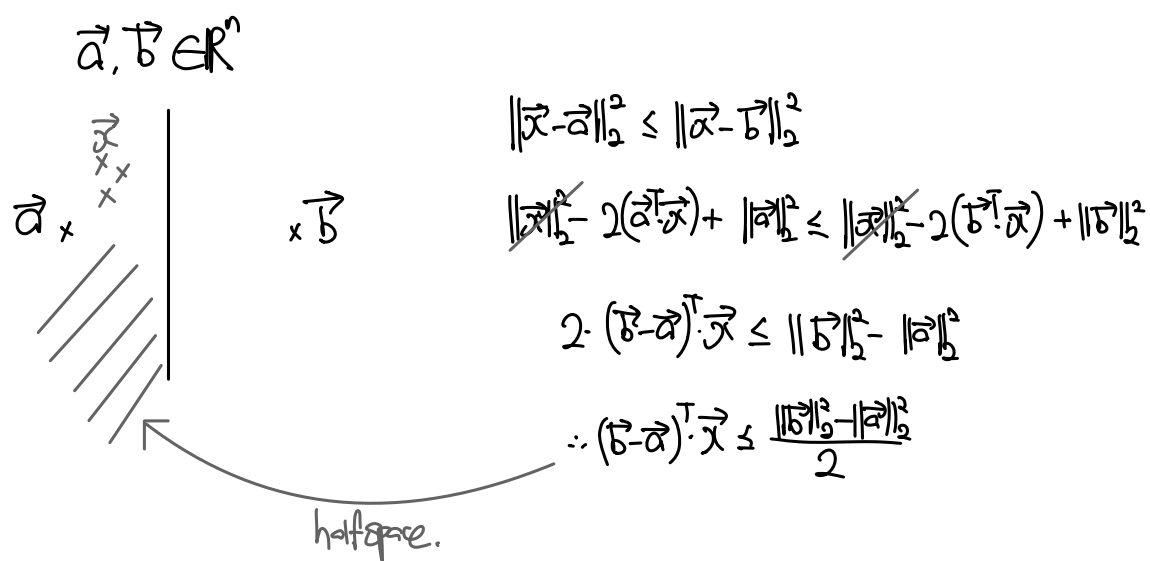 a⃗, b⃗ ∈ ℝⁿ
x⃗
a⃗ × × b⃗
‖x⃗ - a⃗‖₂² ≤ ‖x⃗ - b⃗‖₂²
‖x⃗‖₂² - 2(a⃗ᵀ·x⃗) + ‖a⃗‖₂² ≤ ‖x⃗‖₂² - 2(b⃗ᵀ·x⃗) + ‖b⃗‖₂²
2·(b⃗ - a⃗)ᵀ·x⃗ ≤ ‖b⃗‖₂² - ‖a⃗‖₂²
∴ (b⃗ - a⃗)ᵀ·x⃗ ≤ (‖b⃗‖₂² - ‖a⃗‖₂²)/2
halfspace.